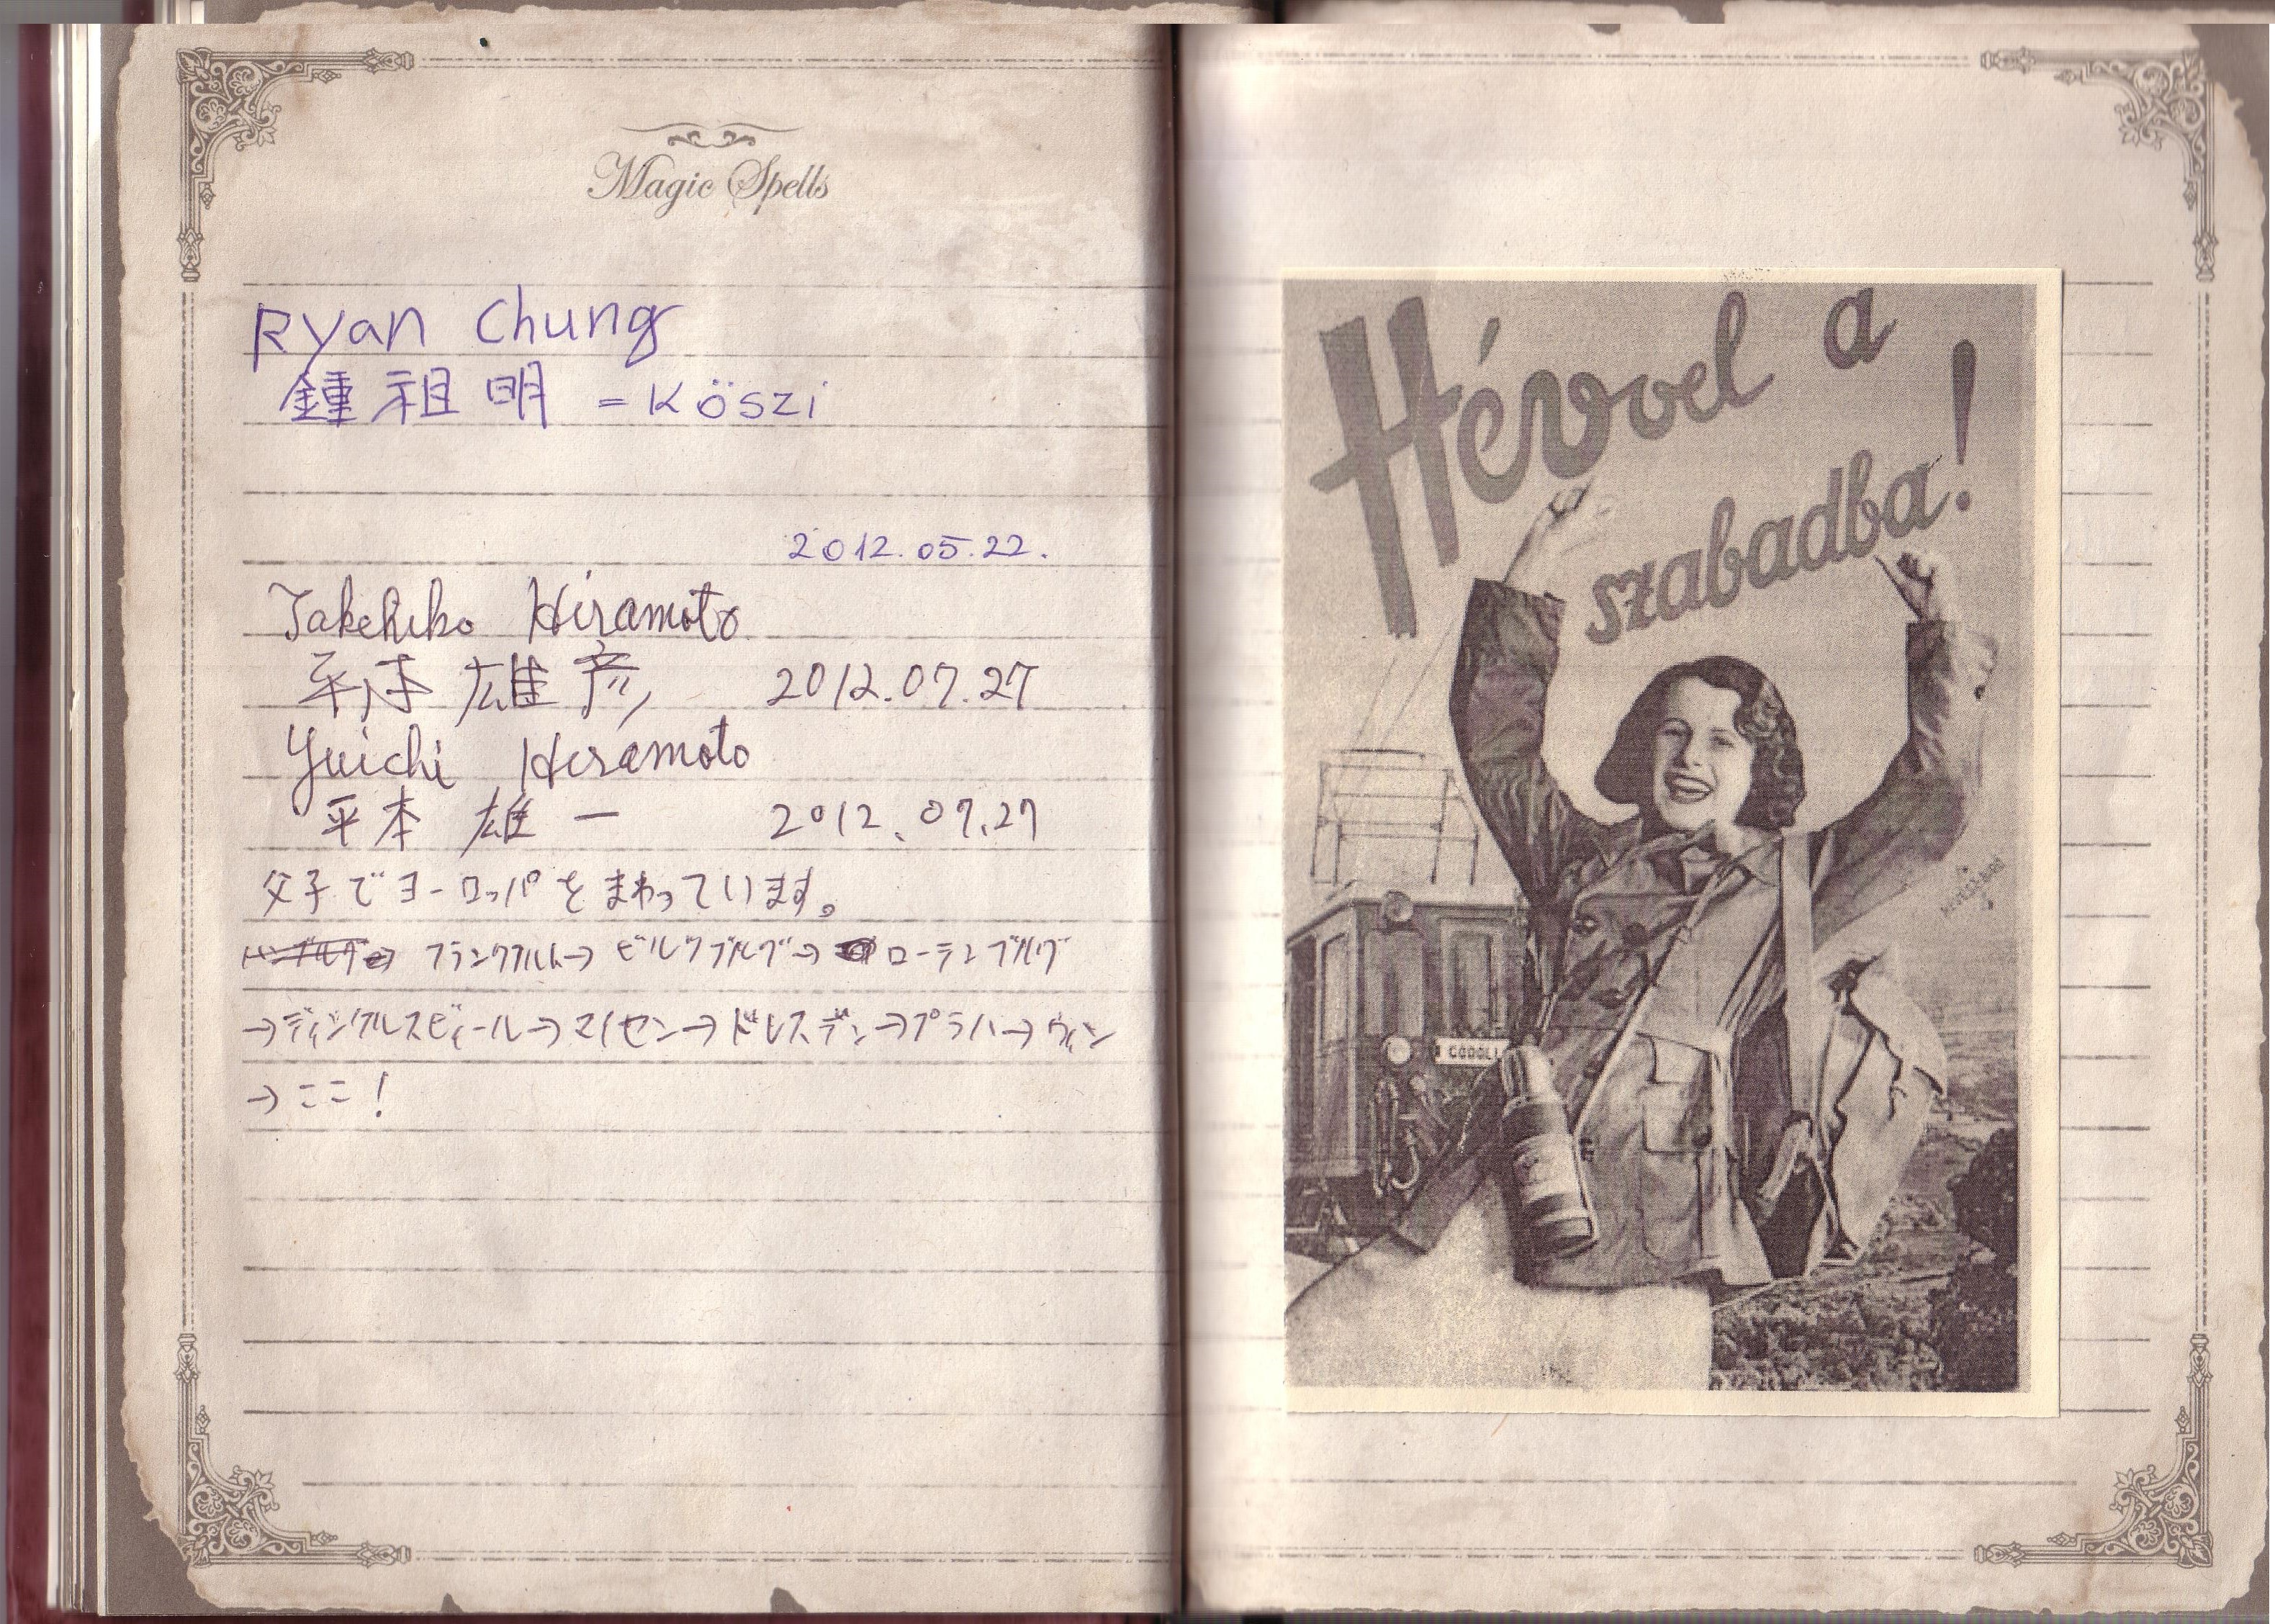 Magic Spells
Ryan Chung
鍾祖明 = Köszi
2012.05.22.
Takehiko Hiramoto
平本 雄彦 2012.07.27
Yuichi Hiramoto
平本 雄一 2012.07.27
父子でヨーロッパをまわっています。
→ フランクフルト→ ビルツブルグ→ ローテンブルグ
→ディンケルスビュール→マイセン→ドレスデン→プラハ→ウィーン
→ここ!
Hévvel a
szabadba!
GÖDÖLL